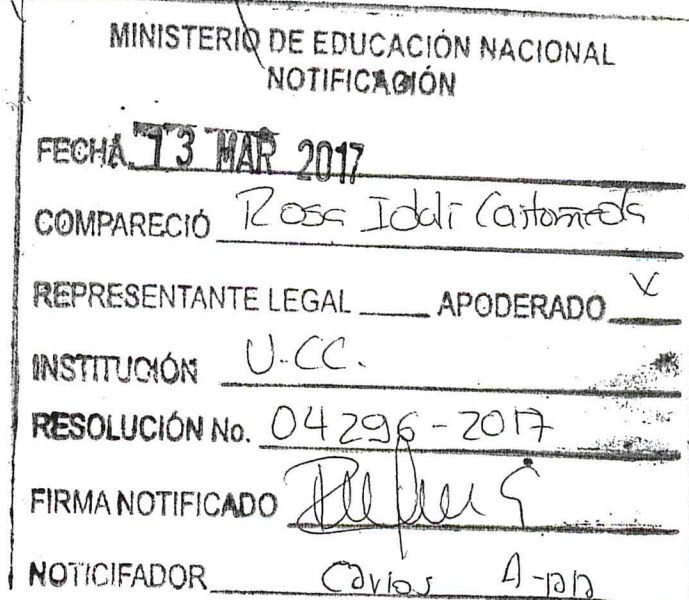 MINISTERIO DE EDUCACIÓN NACIONAL
NOTIFICACIÓN
FECHA 13 MAR 2017
COMPARECIÓ Rosa Idali Castañeda
REPRESENTANTE LEGAL APODERADO X
INSTITUCIÓN U.CC.
RESOLUCIÓN No. 04296-2017
FIRMA NOTIFICADO
NOTICIFADOR Carlos